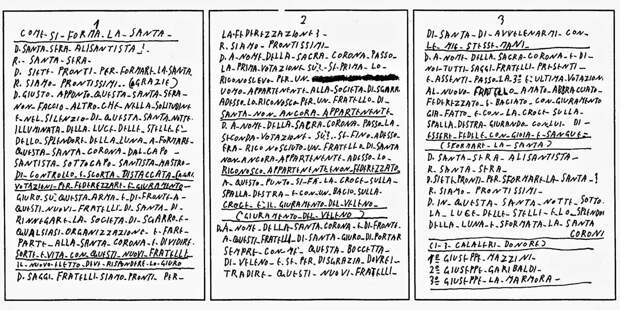 1
COME SI FORMA LA SANTA
D. SANTA SERA ALISANTISTA !
R. SANTA SERA
D. SIETE PRONTI PER FORMARE LA SANTA
R. SIAMO PRONTISSIMI. (GRAZIE)
D. GIUSTO APPUNTO QUESTA SANTA SERA
NON FACCIO ALTRO CHE NELLA SOLITUDINE
E NEL SILENZIO DI QUESTA SANTA NOTTE
ILLUMINATA DELLA LUCE DELLE STELLE E
DELLO SPLENDORE DELLA LUNA A FORMARE
QUESTA SANTA CORONA DAL CAPO
SANTISTA SOTTOCAPO SANTISTA MASTRO
DI CONTROLLO E SCORTA DISTACCATA
VOTAZIONI PER FEDERIZZARE E GIURAMENTO
GIURO SU QUESTA ARMA E DI FRONTE A
QUESTI NUOVI FRATELLI DI SANTA DI
RINNEGARE LA SOCIETÀ DI SGARRO E
QUALSIASI ORGANIZZAZIONE E FARE
PARTE ALLA SANTA CORONA E DIVIDIRE
SORTE E VITA CON QUESTI NUOVI FRATELLI
IL NUOVO ELETTO DEVI RISPONDERE LO GIURO
D. SAGGI FRATELLI SIAMO PRONTI PER
2
LA FEDERIZZAZIONE ?
R. SIAMO PRONTISSIMI
D. A NOME DELLA SACRA CORONA PASSO
LA PRIMA VOTAZIONE SU SI PRIMA LO
RICONOSCEVO PER UN
UOMO APPARTENENTE ALLA SOCIETÀ DI SGARRO
ADESSO LO RICONOSCO PER UN FRATELLO DI
SANTA NON ANCORA APPARTENENTE
D. A NOME DELLA SACRA CORONA PASSO LA
SECONDA VOTAZIONE SU SI FINO ADESSO
ERA RICONOSCIUTO UN FRATELLO DI SANTA
NON ANCORA APPARTENENTE ADESSO LO
RICONOSCO APPARTENENTE NON FEDERIZZATO
A QUESTO PUNTO SI FA LA CROCE SULLA
SPALLA DESTRA E CON UN BACIO SULLA
CROCE E IL GIURAMENTO DEL VELENO
(GIURAMENTO DEL VELENO)
D. A NOME DELLA SANTA CORONA E DI FRONTE
A QUESTI FRATELLI DI SANTA GIURO DI PORTAR
SEMPRE CON ME QUESTA BOCCETTA
DI VELENO E SE PER DISGRAZIA DOVREI
TRADIRE QUESTI NUOVI FRATELLI
3
DI SANTA DI AVVELENARMI CON
LE MIE STESSE MANI
D. A NOME DELLA SACRA CORONA E DI
NOI TUTTI SAGGI FRATELLI PRESENTI
E ASSENTI PASSO LA 3ª E ULTIMA VOTAZIONE
AL NUOVO FRATELLO AMATO ABBRACCIATO
FEDERIZZATO E BACIATO CON GIURAMENTO
GIÀ FATTO E CON LA CROCE SULLA
SPALLA DESTRA GIURANDO CON LUI DI
ESSERE FEDELE CON GIOIA E SANGUE
(SFORMARE LA SANTA)
D. SANTA SERA ALISANTISTA
R. SANTA SERA
D. SIETE PRONTI PER SFORMARE LA SANTA !
R. SIAMO PRONTISSIMI
D. IN QUESTA SANTA NOTTE SOTTO
LA LUCE DELLE STELLE E LO SPLENDORE
DELLA LUNA E SFORMATA LA SANTA
CORONI
(I 3 CALALERI DONORE)
1º GIUSEPPE MAZZINI
2º GIUSEPPE GARIBALDI
3º GIUSEPPE LA MARMORA